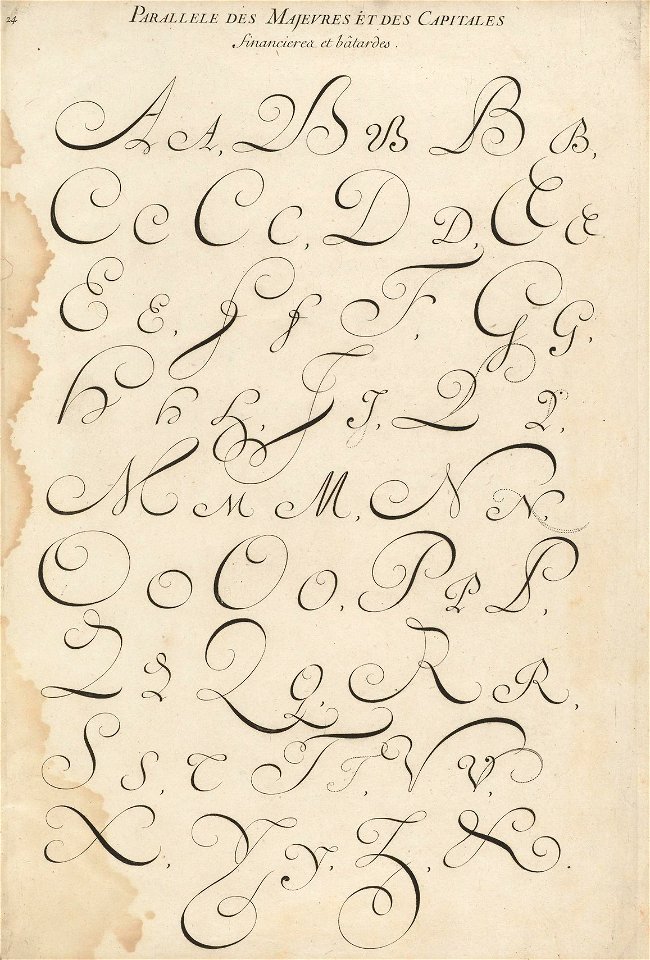 24
PARALLELE DES MAJEVRES ÉT DES CAPITALES
financieres et bâtardes.
A A, B B B B,
C C C C, D D, E E
E E, F F F, G G,
H H H, J J, L L,
M M M, N N,
O O O O, P P P,
Q Q Q Q, R R,
S S, T T T, V V,
X, Y Y, Z, &.